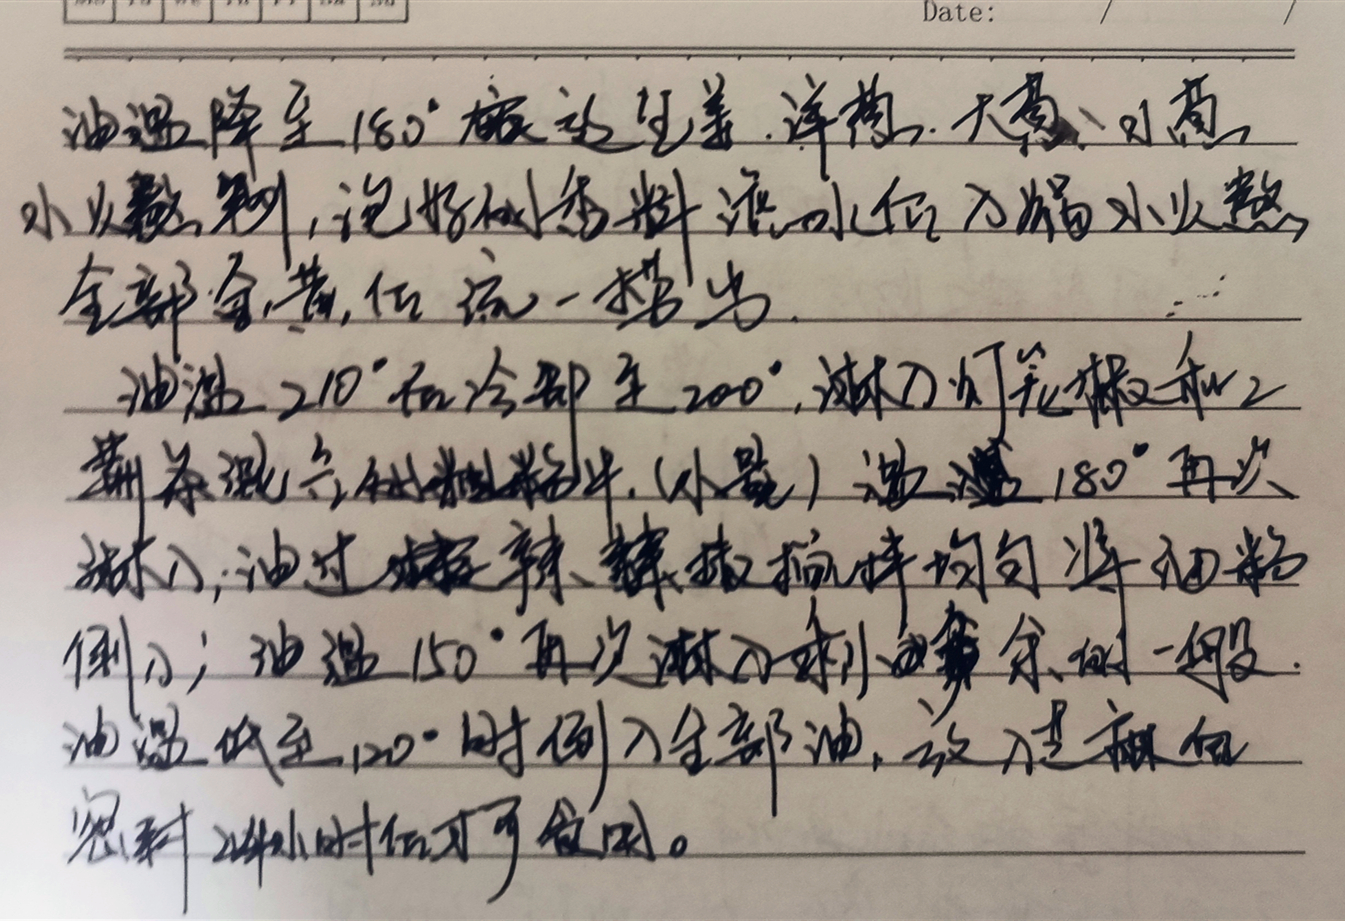 Date: / /
油温降至180°放入生姜、洋葱、大葱、小葱
小火熬制,泡好的香料滤水后入锅小火熬
全部金黄,后流一捞出.
油温210°后冷却至200°,淋入灯笼椒和二
荆条混合的粗粉中,(少量)油温180°再次
淋入;油过辣椒搅拌均匀将细粉
倒入;油温150°再次淋入剩余的一般.
油温低至120°时倒入全部油,放入芝麻后
密封24小时后才可食用。